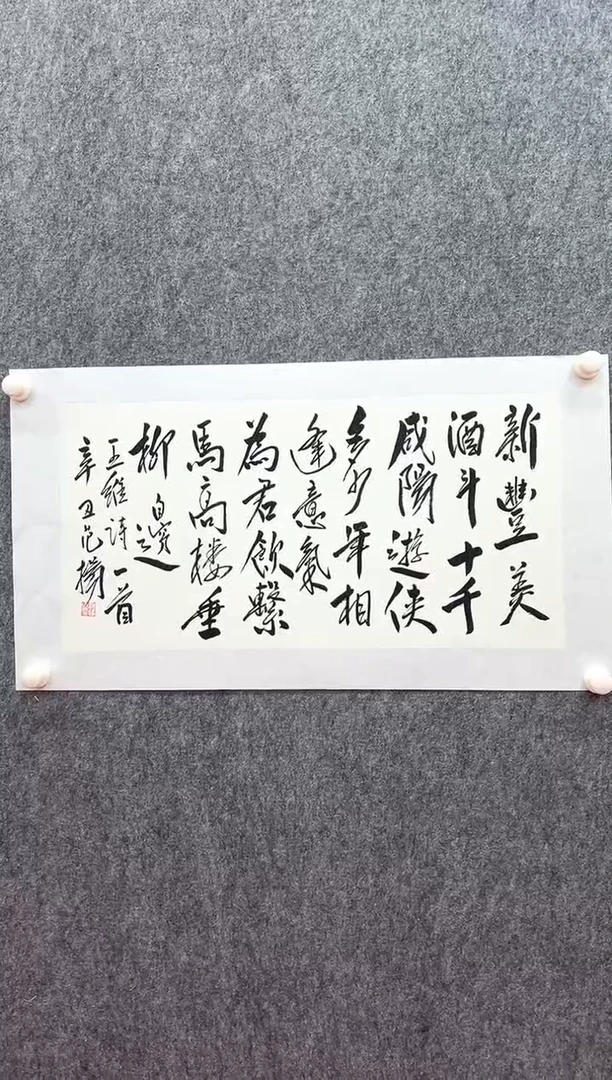 新豐美
酒斗十千
咸陽遊侠
多少年相
逢意氣
為君飲繫
馬高楼垂
柳邊
王維詩一首
辛丑范揚